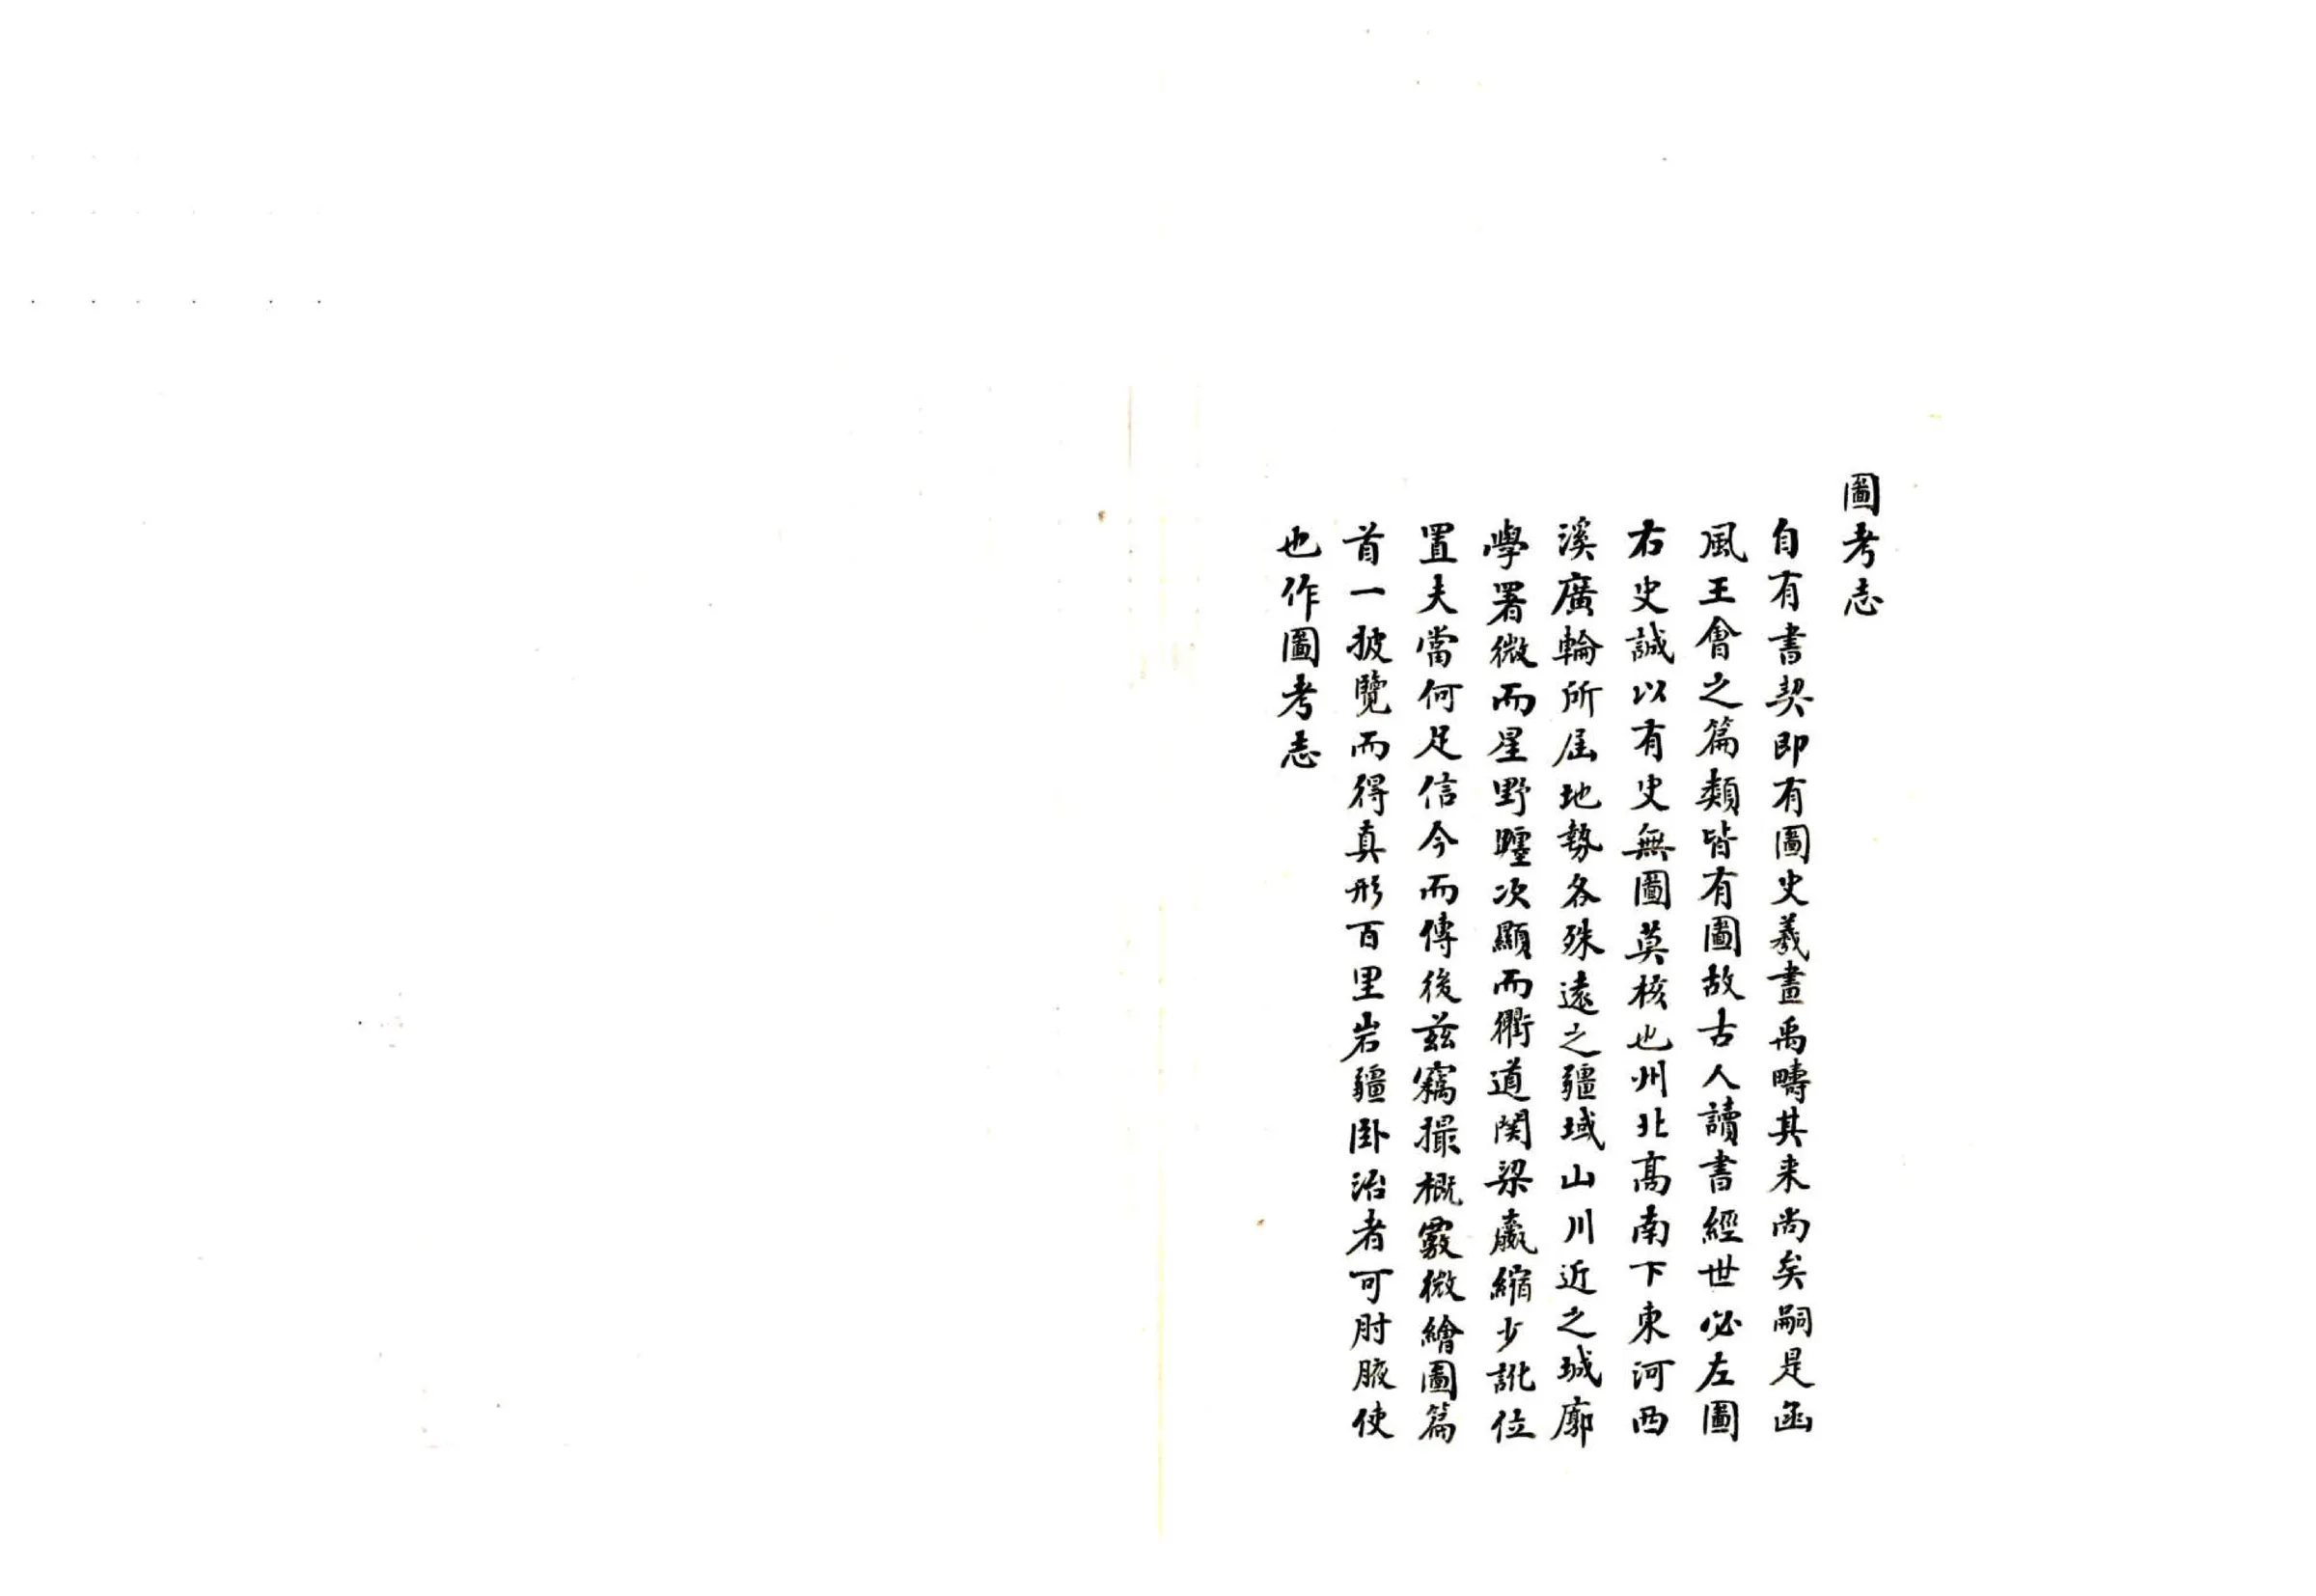 圖考志
自有書契即有圖史羲畫禹疇其来尚矣嗣是函
風王會之篇類皆有圖故古人讀書經世必左圖
右史誠以有史無圖莫核也州北髙南下東河西
溪廣輪所屆地勢各殊遠之疆域山川近之城廓
學署微而星野躔次顯而衢道関梁贏縮少訛位
置夫當何足信今而傳後兹竊撮概覈微繪圖篇
首一披覽而得真形百里岩疆卧治者可肘腋使
也作圖考志